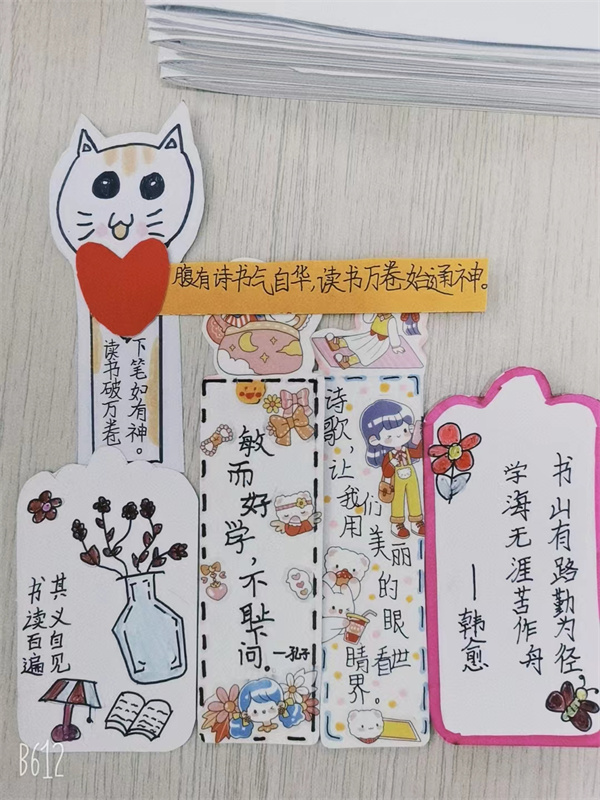 腹有诗书气自华,读书万卷始通神。
读书破万卷
下笔如有神。
书读百遍
其义自见
敏而好学,不耻下问。—孔子
诗歌,让我们用美丽的眼睛看世界。
书山有路勤为径
学海无涯苦作舟
—韩愈
B612